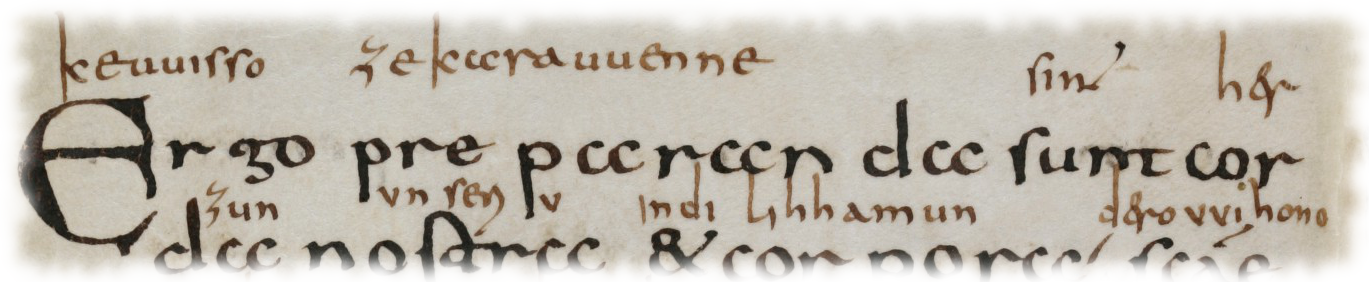 keuuisso ze karauuenne sint her
Ergo pre paran da sunt cor
zun vnseriv indi lihhamun dero vvihono
da nostra & corpora scae